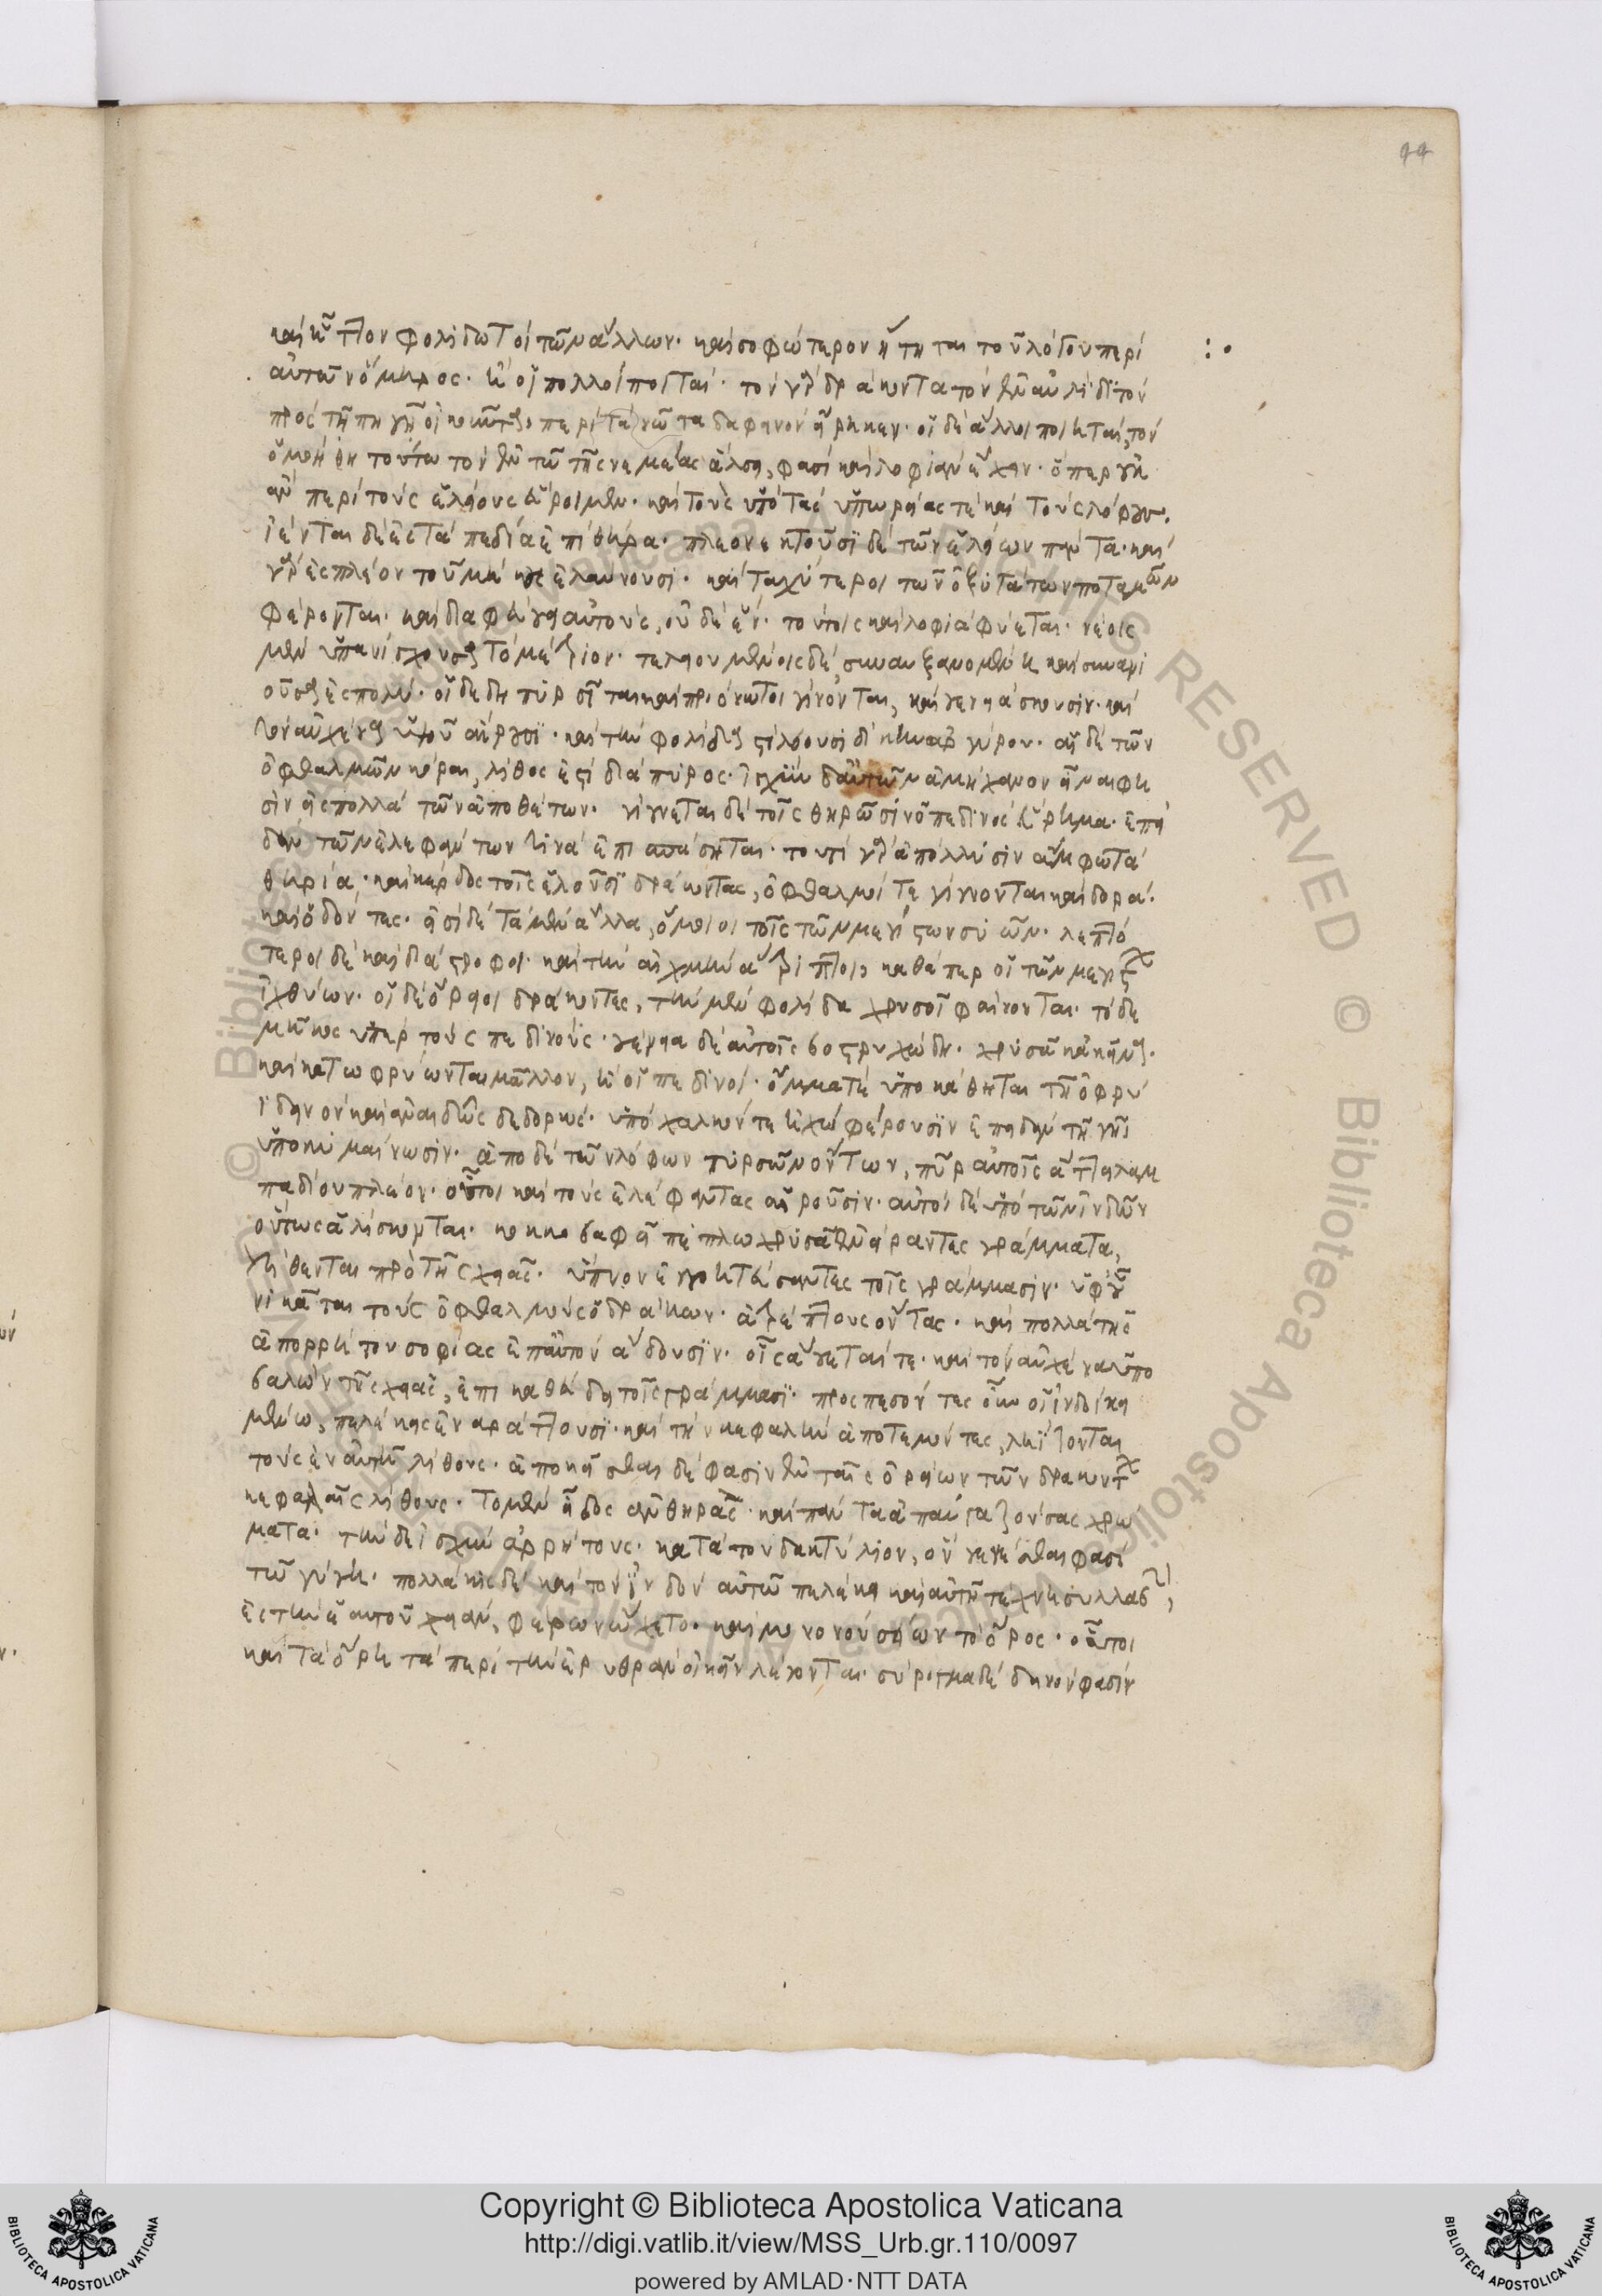 44
καὶ ἧττον φολιδωτοὶ τῶν ἄλλων· καὶ σοφώτερον ἥττηται τοῦ λόγου περὶ
αὐτῶν ὅμηρος· ἢ οἱ πολλοὶ ποιταί· τὸν γὰρ δράκοντα τὸν ἐν αὐλίδι τὸν
πρὸς τῇ πηγῇ οἰκοῦντα περὶ τὰ νῶτα δαφηνὸν εἴρηκεν· οἱ δὲ ἄλλοι ποιηταὶ, τὸν
ὁμοήθη τούτω τὸν ἐν τῶ τῆς νεμέας ἄλσει, φασὶ καὶ λοφιὰν ἔχειν· ὅπερ οὐκ
ἂν περὶ τοὺς ἑλείους εὕροιμεν· καὶ τοὺς ὑπὸ τὰς ὑπωρείας τὲ καὶ τοὺς λόφους·
ἵενται δὲ ἐς τὰ πεδία ἐπὶ θήρα· πλεονεκτοῦσι δὲ τῶν ἑλείων πάντα· καὶ
γὰρ ἐς πλέον τοῦ μήκους ἐλαύνουσι· καὶ ταχύτεροι τῶν ὀξυτάτων ποταμῶν
φέρονται· καὶ διαφεύγει αὐτοὺς, οὐδὲ ἕν· τούτοις καὶ λοφιὰ φύεται· νέοις
μὲν ὑπανίσχουσα τὸ μέτριον· τελειουμένοις δὲ, συναυξανομένη καὶ συνανι
οῦσα ἐς πολύ· οἱ δὲ δὴ πυρσῖταί καὶ πριονωτοὶ γίνονται, καὶ γενειάσκουσιν· καὶ
τὸν αὐχένα ὑψοῦ αἴρουσι· καὶ τὴν φολίδα στίλβουσι δίκην ἀργύρου· αἱ δὲ τῶν
ὀφθαλμῶν κόραι, λίθος ἐστὶ διάπυρος· ἰσχὺν δ' αὐτῶν ἀμήχανον εἶναί φη
σιν ἐς πολλὰ τῶν ἀποθέτων· γίγνεται δὲ τοῖς θηρῶσιν ὁ πεδινὸς εὕρημα· ἐπει
δὰν τῶν ἐλεφάντων τινὰ ἐπισπάσηται· τουτὶ γὰρ ἀπόλλυσιν ἄμφω τὰ
θηρία· καὶ κέρδος τοῖς ἑλοῦσι δράκοντας, ὀφθαλμοί τε γίγνονται καὶ δορά·
καὶ ὀδόντες· εἰσὶ δὲ τὰ μὲν ἄλλα, ὅμοιοι τοῖς τῶν μεγίστων συῶν· λεπτό
τεροι δὲ καὶ διάστροφοι· καὶ τὴν αἰχμὴν ἄτριπτοι, καθάπερ οἱ τῶν μεγίστων
ἰχθύων· οἱ δὲ ὄρειοι δράκοντες, τὴν μὲν φολίδα χρυσοῖ φαίνονται· τὸ δὲ
μῆκος ὑπὲρ τοὺς πεδινούς· γένεια δὲ αὐτοῖς βοστρυχώδη· χρυσᾶ κἀκεῖνα·
καὶ κατωφρύωνται μᾶλλον, ἢ οἱ πεδινοί· ὄμμα τὲ ὑποκάθηται τῇ ὀφρύ
ϊ δεινὸν καὶ ἀναιδὲς δεδορκός· ὑπόχαλκόν τε ἠχὼ φέρουσιν ἐπειδὰν τῇ γῇ
ὑποκυμαίνωσιν· ἀπὸ δὲ τῶν λόφων πυρσῶν ὄντων, πῦρ αὐτοῖς ἄττει λαμ
παδίου πλέον· οὗτοι καὶ τοὺς ἐλέφαντας αἱροῦσιν· αὐτοὶ δὲ ὑπὸ τῶν ἰνδῶν
οὕτως ἁλίσκονται· κοκκοβαφεῖ πέπλω χρυσᾶ ἐνείραντες γράμματα,
τίθενται πρὸ τῆς χειᾶς· ὕπνον ἐγγοητεύσαντες τοῖς γράμμασιν· ὑφ' οὗ
νικᾶται τοὺς ὀφθαλμοὺς ὁ δράκων· ἀτρέπτους ὄντας· καὶ πολλὰ τῆς
ἀπορρήτου σοφίας ἐπ' αὐτὸν ἄδουσιν· οἷς ἄγεταί τε· καὶ τὸν αὐχένα ὑπο
βαλὼν τῆς χειᾶς, ἐπικαθεύδει τοῖς γράμμασι· προσπεσόντες οὖν οἱ ἰνδοὶ κει
μένω, πελέκεις ἐναράττουσι· καὶ τὴν κεφαλὴν ἀποτεμόντες, ληίζονται
τοὺς ἐν αὐτῇ λίθους· ἀποκεῖσθαι δὲ φασὶν ἐν ταῖς ὀρείων τῶν δρακόντων
κεφαλαῖς λίθους· τὸ μὲν εἶδος ἀνθηρὰς· καὶ πάντα ἀπαυγαζούσας χρώ
ματα· τὴν δὲ ἰσχὺν ἀρρήτους· κατὰ τὸν δακτύλιον, ὃν γενέσθαι φασὶ
τῶ γύγη· πολλάκις δὲ καὶ τὸν ἰνδὸν αὐτῶ πελέκει καὶ αὐτῇ τέχνη συλλαβὼν,
ἐς τὴν ἑαυτοῦ χειὰν, φέρων ὤχετο· καὶ μονονοὺ σείων τὸ ὄρος· οὗτοι
καὶ τὰ ὄρη τὰ περὶ τὴν ἐρυθρὰν οἰκεῖν λέγονται· σύριγμα δὲ δεινόν φασιν
Copyright © Biblioteca Apostolica Vaticana
http://digi.vatlib.it/view/MSS_Urb.gr.110/0097
powered by AMLAD·NTT DATA